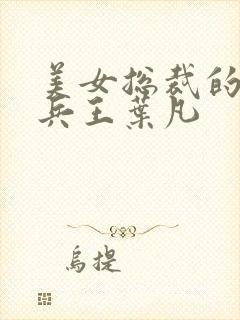 美女总裁的
兵王葉凡
烏提